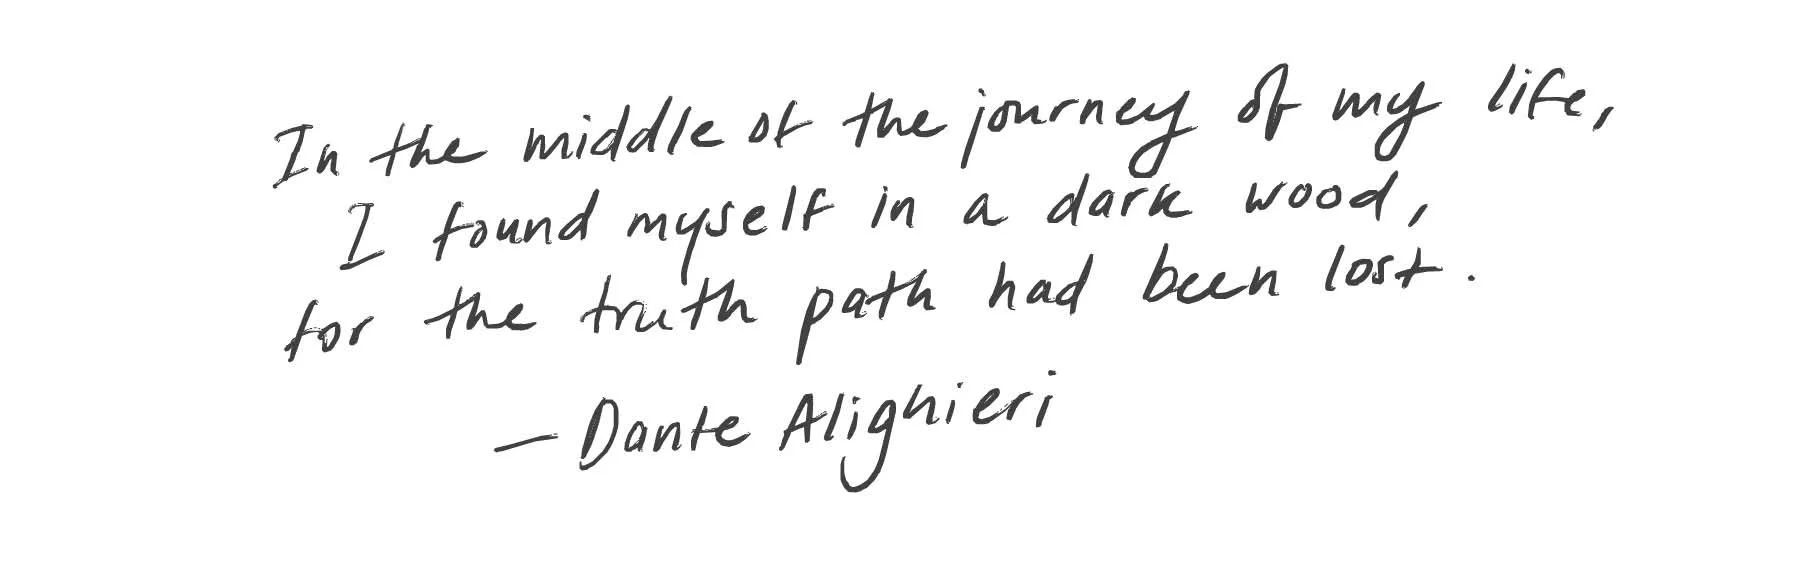 In the middle of the journey of my life,
I found myself in a dark wood,
for the truth path had been lost.
— Dante Alighieri